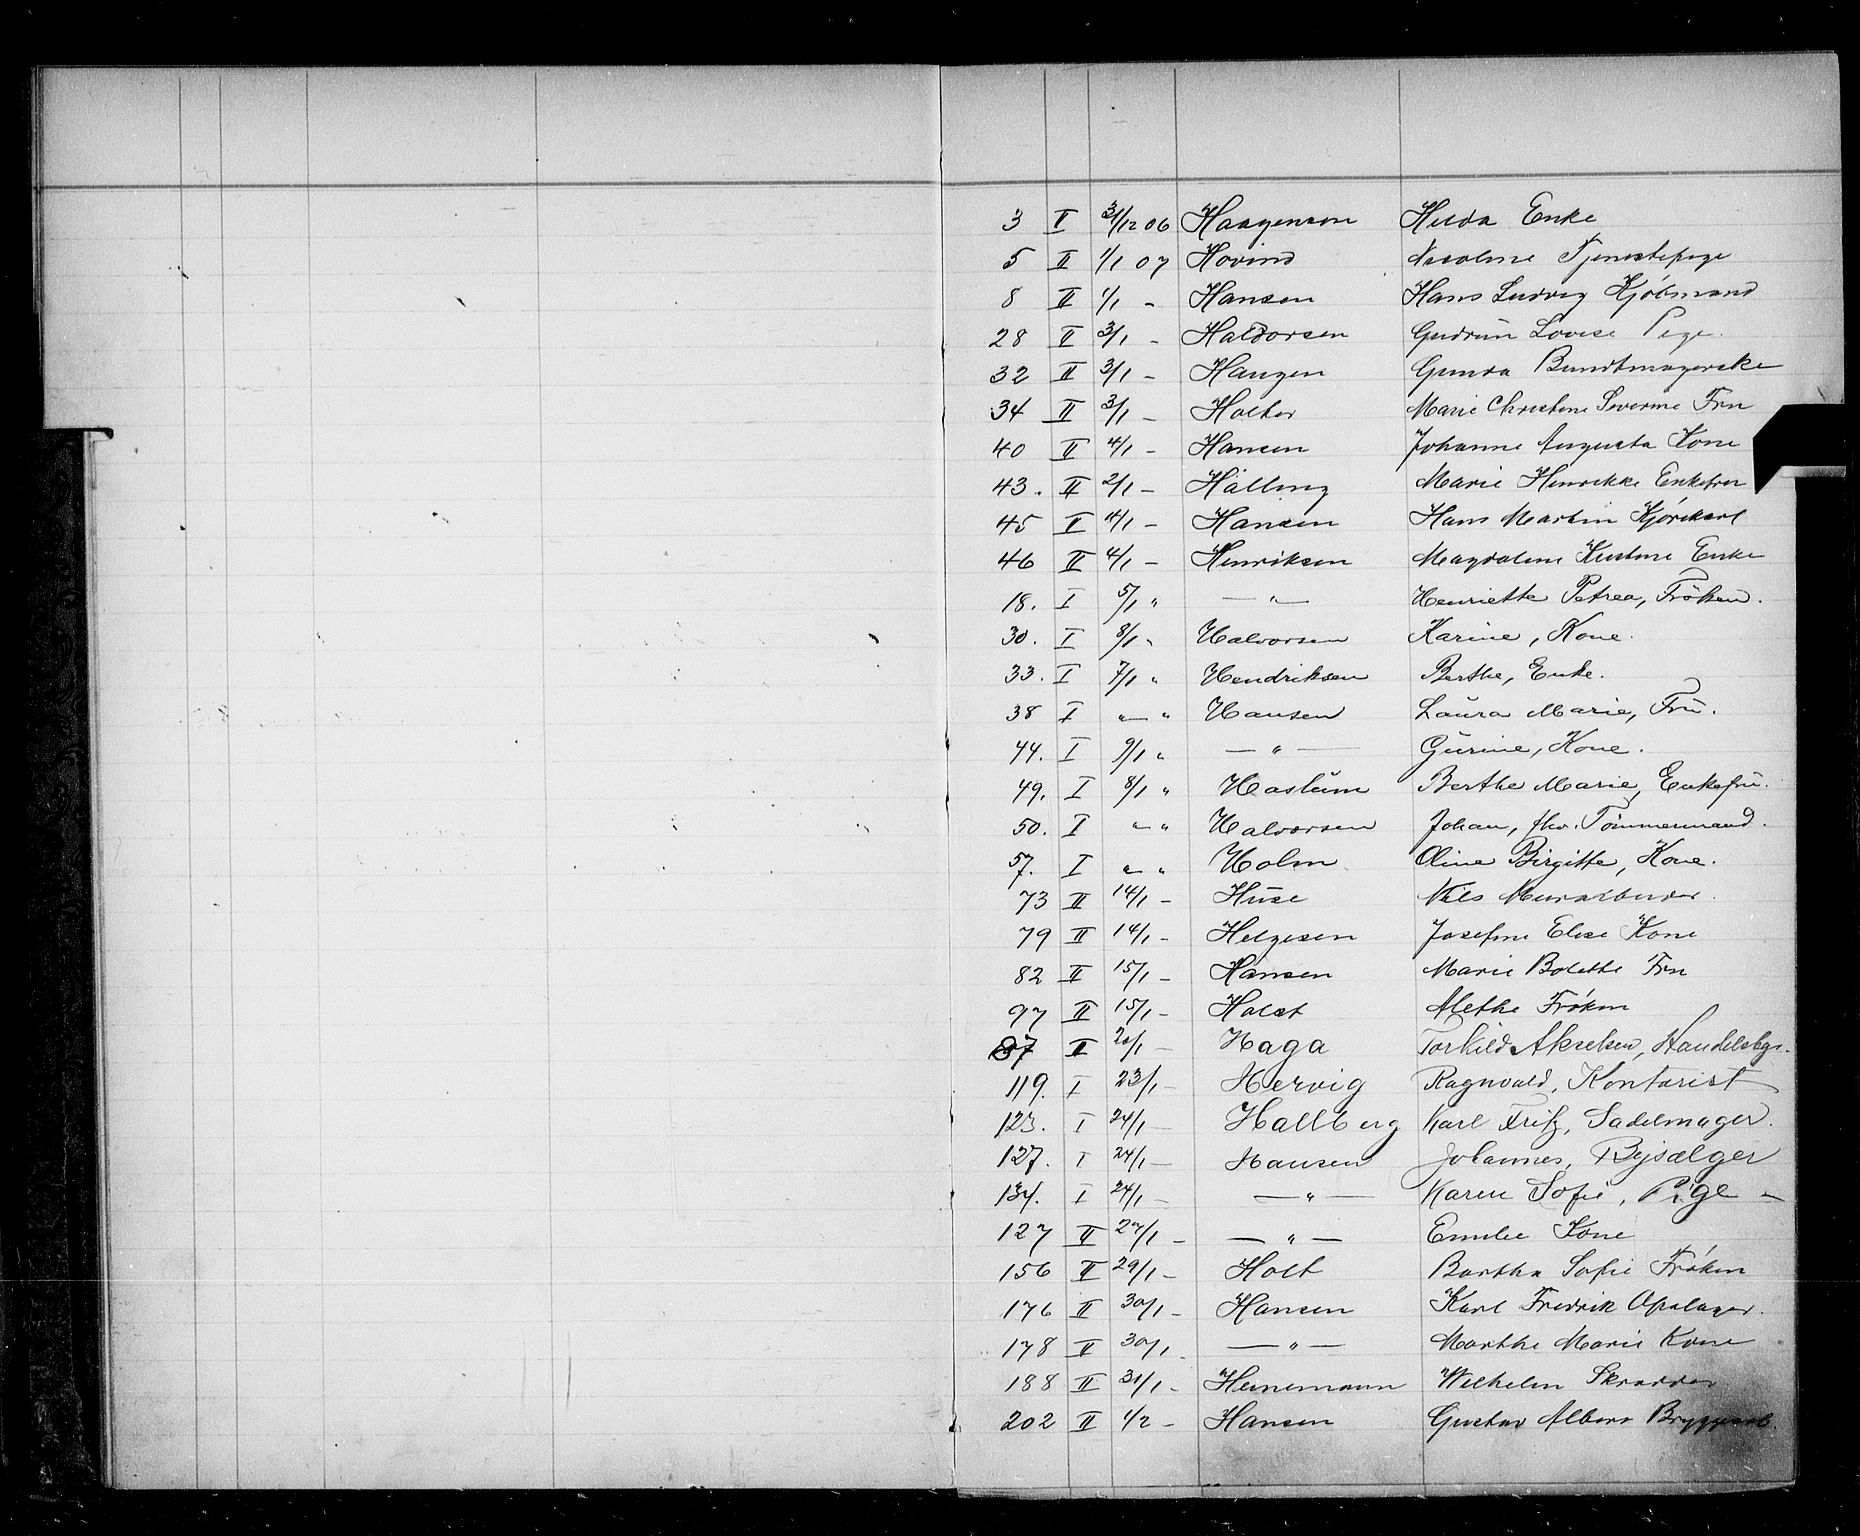 3 II 31/12 06 Haagensen Hilda Enke
5 II 1/1 07 Hovind Nicoline Tjenestepige
8 II 1/1 - Hansen Hans Ludvig Kjøbmand
28 II 3/1 - Haldorsen Gudrun Lovise Pige.
32 II 3/1 - Haugen Gunda Bundtmagerske
34 II 3/1 - Holter Marie Christine Severine Fru
40 II 4/1 - Hansen Johanne Augusta Kone
43. II 2/1 - Hälling Marie Henrikke Enkefru
45 II 4/1 - Hansen Hans Martin Kjørekarl
46 II 4/1 - Henriksen Magdalene Kristine Enke
18. I 5/1 " — " — Henriette Petrea, Frøken.
30. I 8/1 " Halvorsen Karine, Kone.
33. I 7/1 " Hendriksen Berthe, Enke.
38 I — " — " Hansen Laura Marie, Fru.
44. I 9/1 " — " — Gurine, Kone.
49. I 8/1 " Haslum Berthe Marie, Enkefru.
50. I " " Halvorsen Johan, fhv. Tømmermand.
57. I " " Holm Oline Birgitte, Kone.
73 II 14/1 - Huse Nils Murarbeider.
79 II 14/1 - Helgesen Josefine Elise Kone
82 II 15/1 - Hansen Marie Bolette Fru
97 II 15/1 - Holst Alethe Frøken
87 II 20/1 — Haga Torkild Akselsen, Handelsbgt.
119. I 23/1 — Hervig Ragnvald, Kontorist
123. I 24/1 — Hallberg Karl Fritz, Sadelmager.
127. I 24/1 — Hansen Johannes, Bejsælger
134. I 24/1 — — " — Karen Sofie, Pige
127 II 27/1 - — " — Emilie Kone
156 II 29/1 - Holt Bertha Sofie Frøken
176 II 30/1 - Hansen Karl Fredrik Opslager.
178 II 30/1 - — " — Marthe Marie Kone
188 II 31/1 - Heinemann Wilhelm Skrædder
202 II 1/2 - Hansen Gustav Albert Bryggearb.